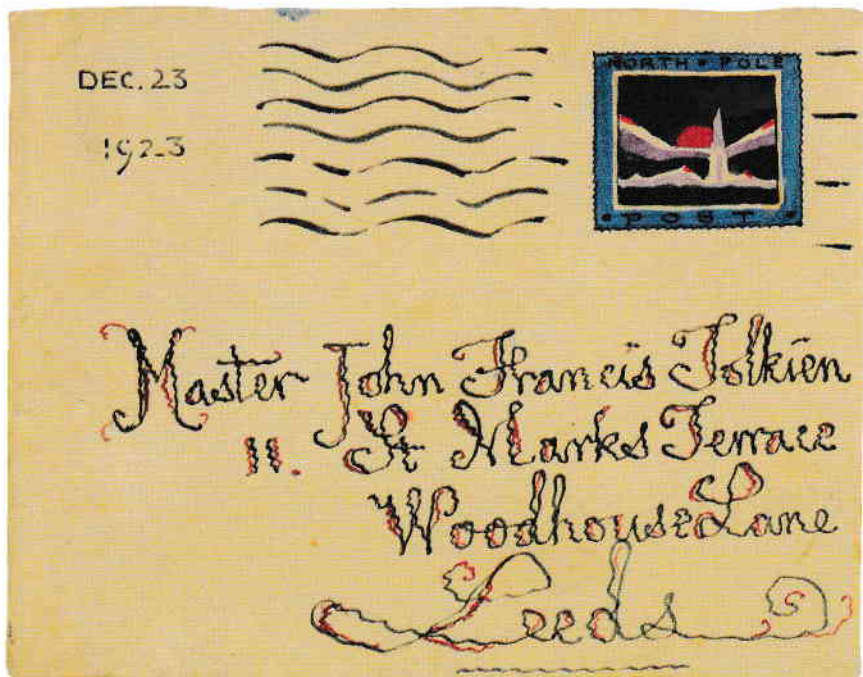 DEC. 23
1923
NORTH • POLE
• POST •
Master John Francis Tolkien
11. St Marks Terrace
Woodhouse Lane
Leeds